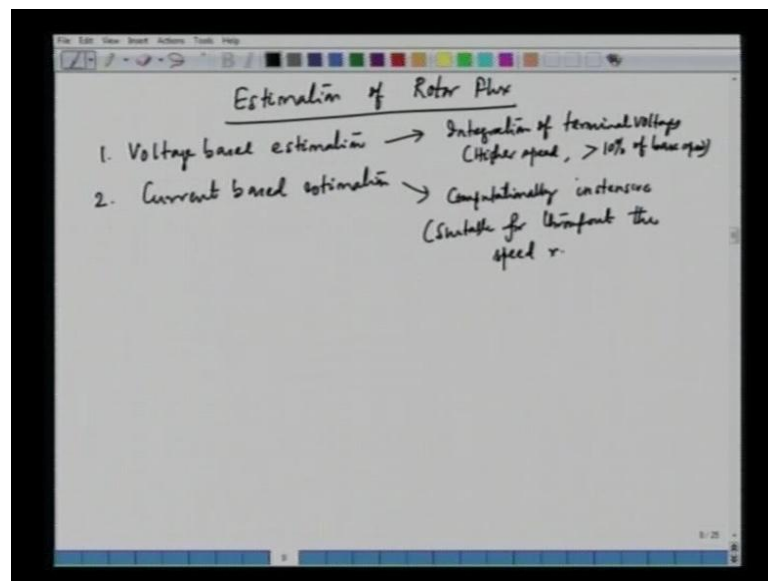 File Edit View Insert Actions Tools Help
Estimation of Rotor Flux
1. Voltage based estimation → Integration of terminal voltage
(Higher speed, > 10% of base speed)
2. Current based estimation → Computationally instensive
(Suitable for throughout the
speed r